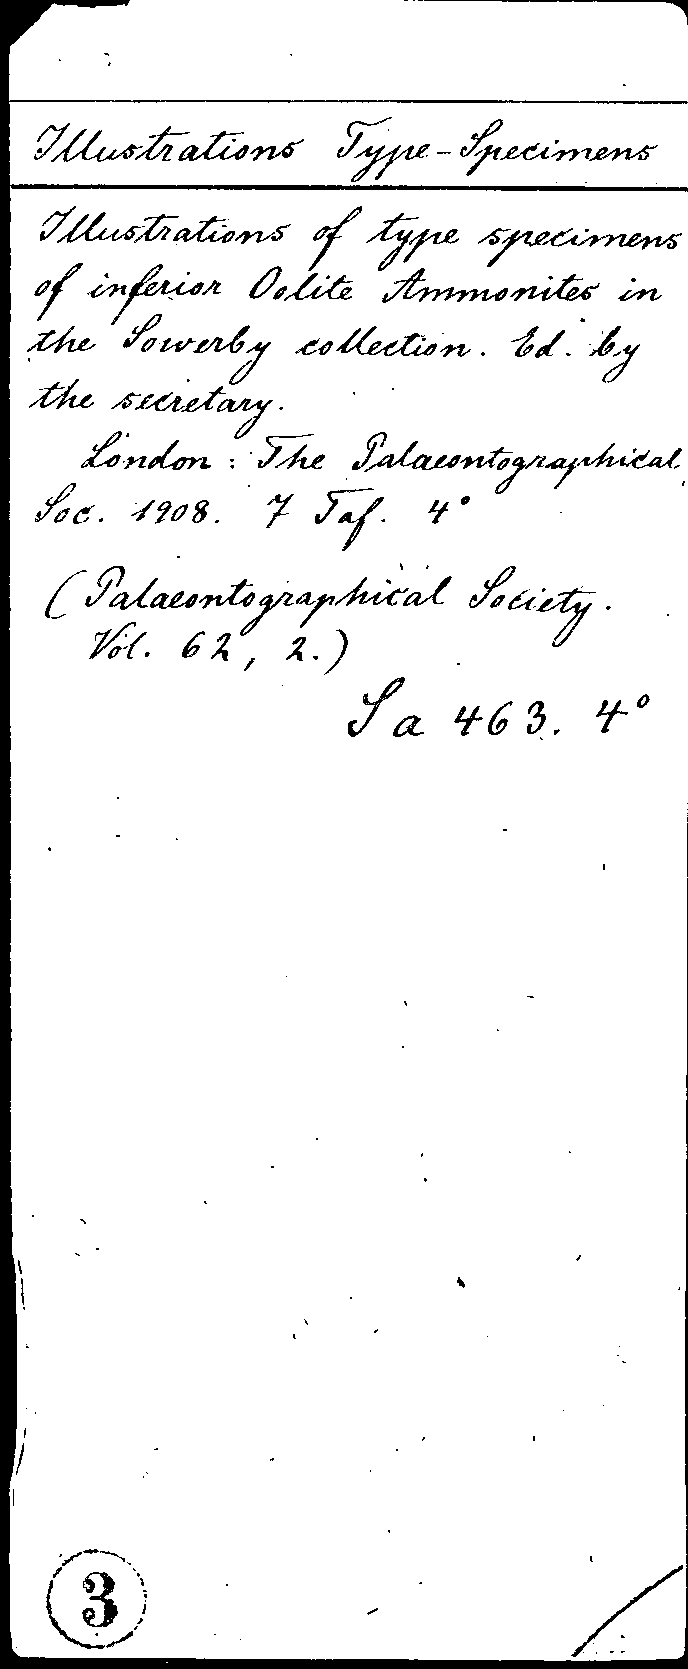 Illustrations Type-Specimens
Illustrations of type specimens
of inferior Oolite Ammonites in
the Sowerby collection. Ed. by
the secretary.
London: The Palaeontographical
Soc. 1908. 7 Taf. 4°
(Palaeontographical Society.
Vol. 62, 2.)
Sa 463. 4°
3